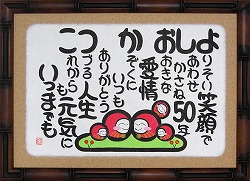 よりそい笑顔で
しあわせ
かさね50年
おおきな
愛情
かぞくに
いつも
ありがとう
つづる人生
これからも元気に
いつまでも